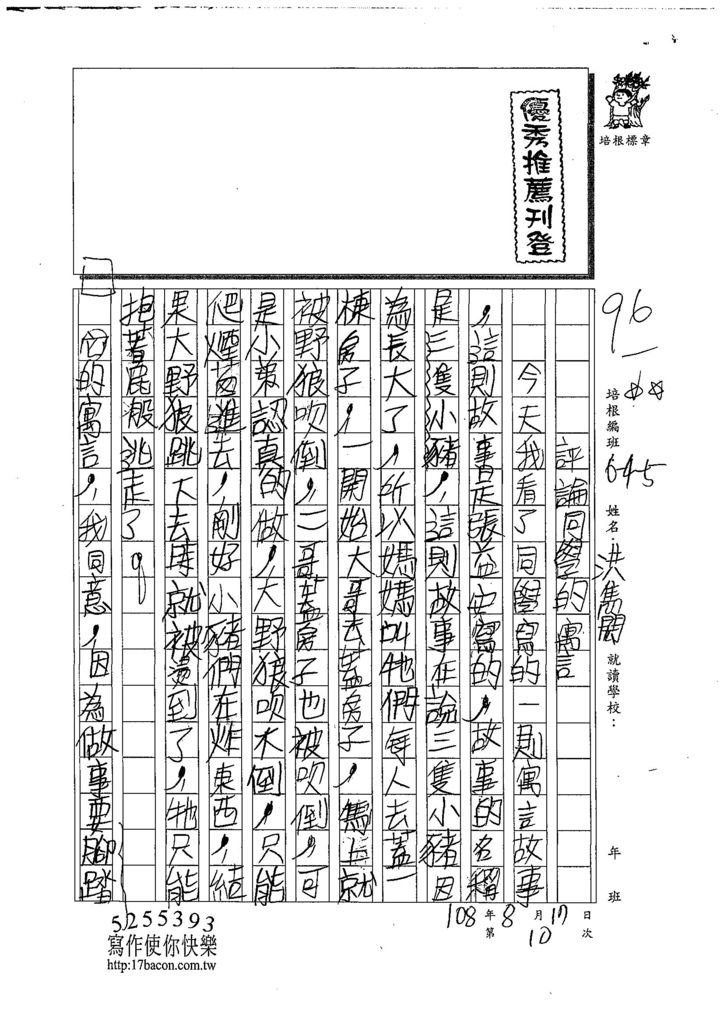 培根標章
優秀推薦刊登
96
培根編班 645 姓名：洪雋閎 就讀學校： 年 班
108年8月17日
第10次
評論同學的寓言
今天我看了同學寫的一則寓言故事
，這則故事是張益安寫的，故事的名稱
是三隻小豬，這則故事在說三隻小豬因
為長大了，所以媽媽叫牠們每人去蓋一
棟房子，一開始大哥去蓋房子，馬上就
被野狼吹倒，二哥蓋房子也被吹倒，可
是小弟認真的做，大野狼吹不倒，只能
爬煙囪進去，剛好小豬們在炸東西，結
果大野狼跳下去時就被燙到了，牠只能
抱著屁股逃走了。
它的寓言，我同意，因為做事要腳踏
5255393
寫作使你快樂
http:17bacon.com.tw